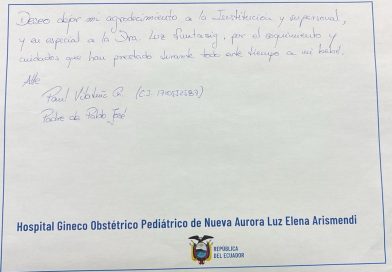 Deseo dejar mi agradecimiento a la Institución y su personal,
y en especial a la Dra. Luz Suntasig, por el seguimiento y
cuidados que han prestado durante todo este tiempo a mi bebé.
Atte
Paul
Padre de Pablo José
Hospital Gineco Obstétrico Pediátrico de Nueva Aurora Luz Elena Arismendi
REPÚBLICA
DEL ECUADOR